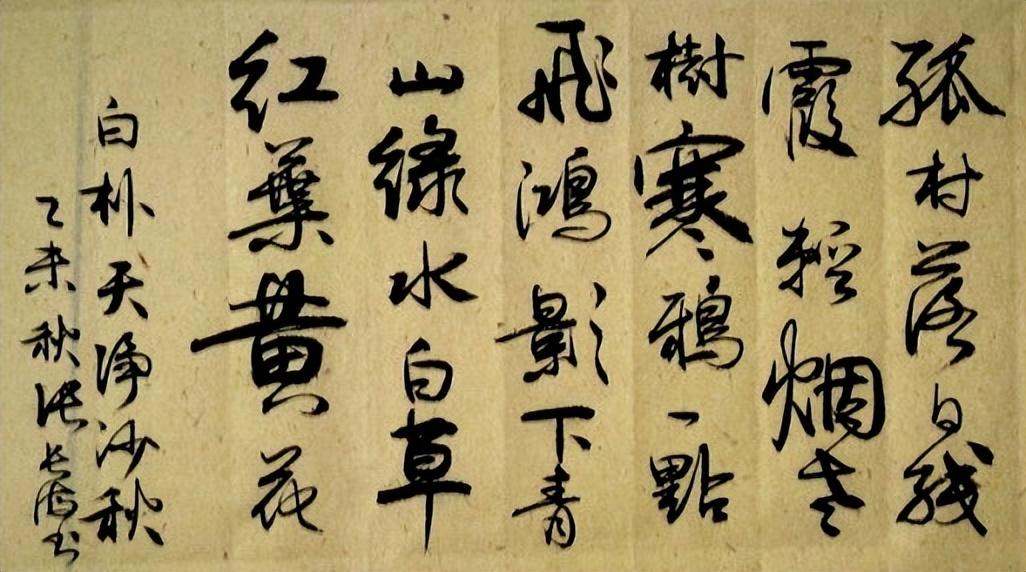 孤村落日残
霞輕烟老
樹寒鴉一點
飛鴻影下青
山綠水白草
紅葉黄花
白朴天净沙秋
乙未秋张长海书